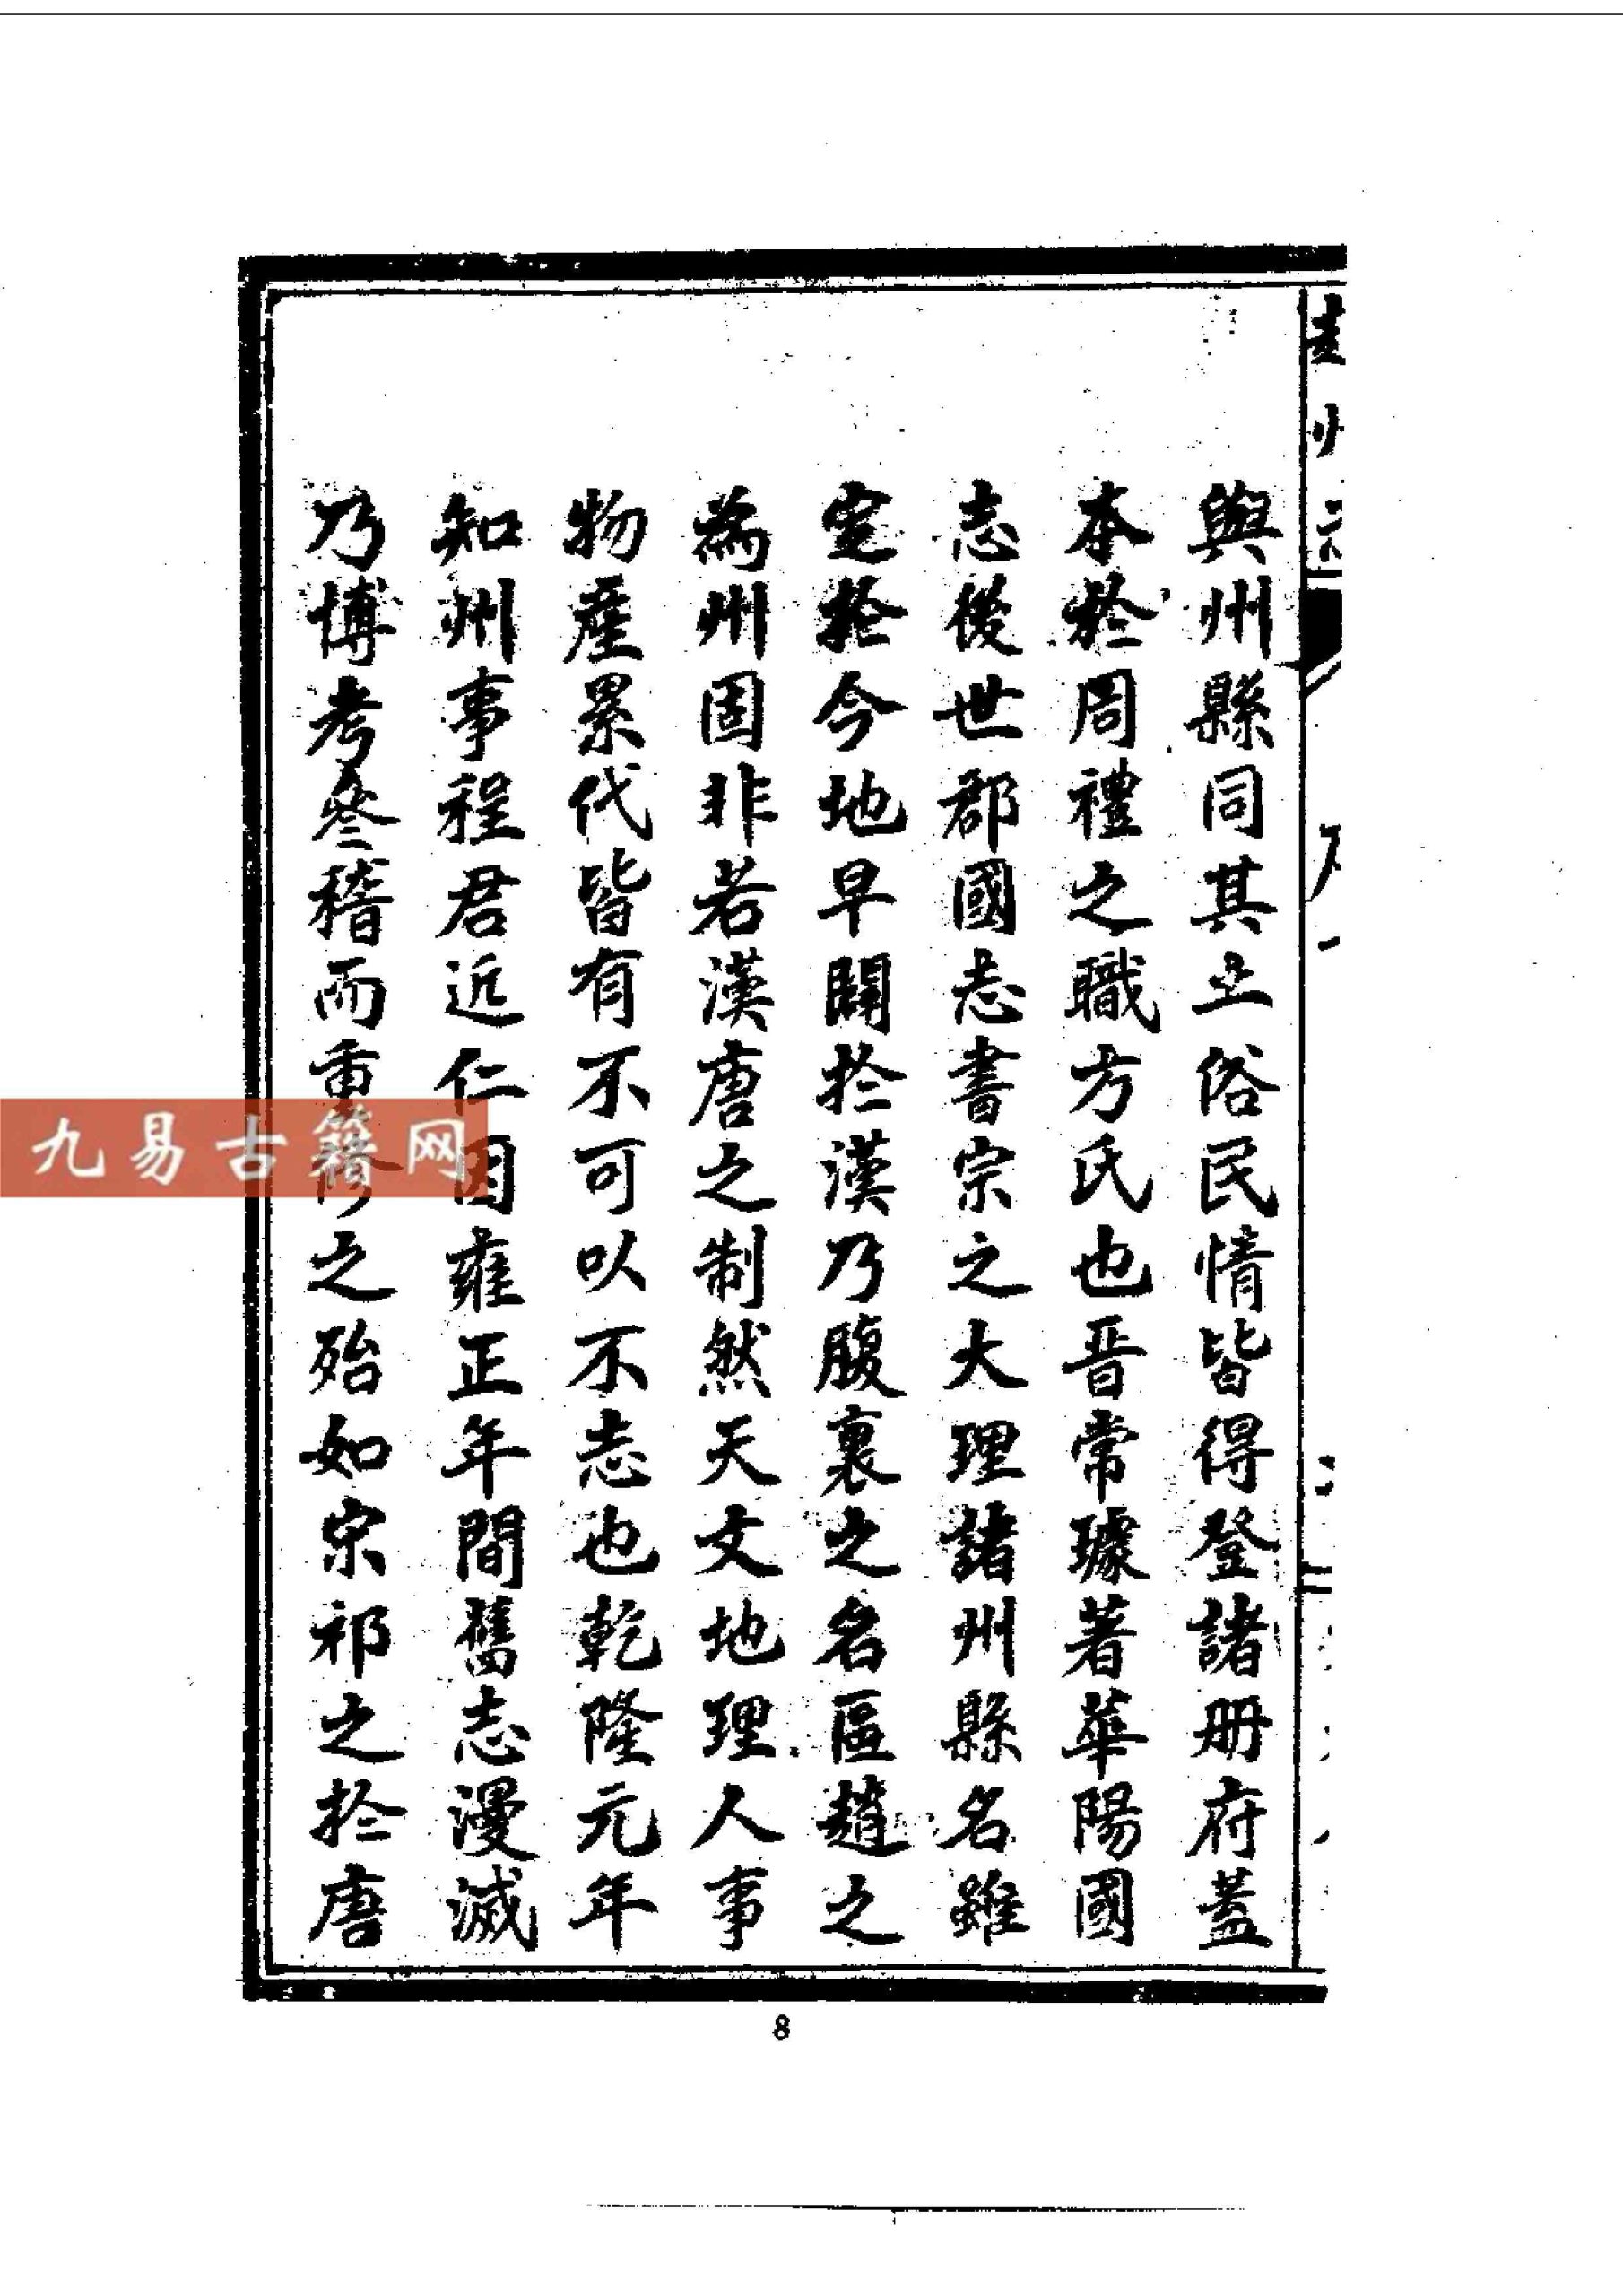 與州縣同其土俗民情皆得登諸册府蓋
本於周禮之職方氏也晉常璩著華陽國
志後世郡國志書宗之大理諸州縣名雖
定於今地早闢於漢乃腹裏之名區趙之
為州固非若漢唐之制然天文地理人事
物產累代皆有不可以不志也乾隆元年
知州事程君近仁因雍正年間舊志漫滅
乃博考叅稽而重修之殆如宋祁之於唐
九易古籍网
8